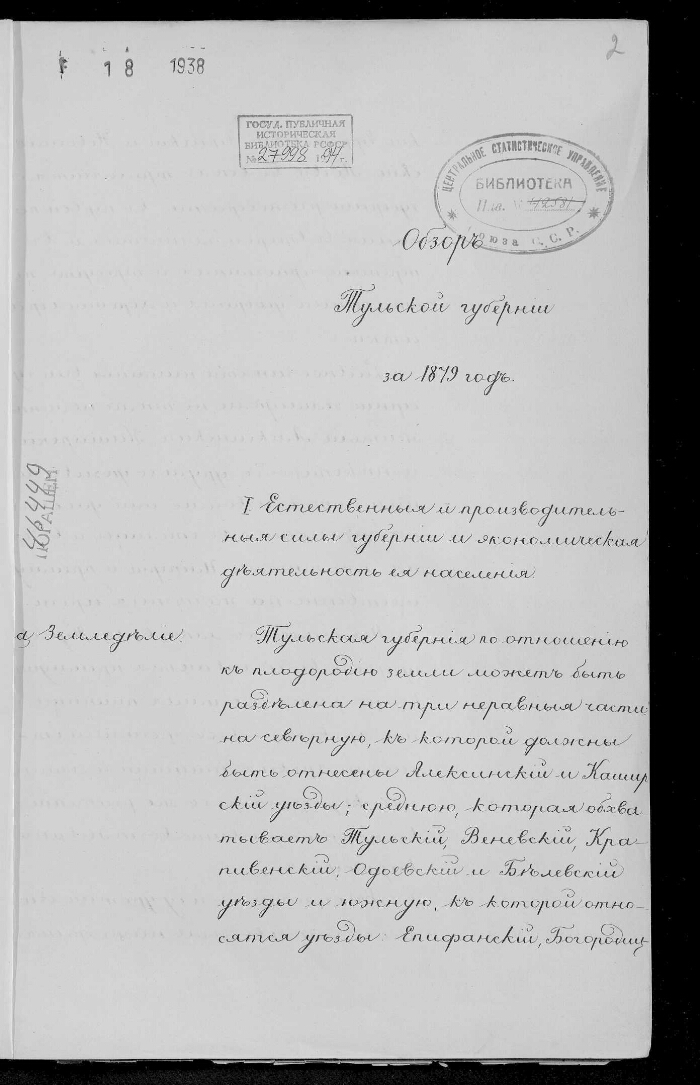 2
18 1938
ГОСУД. ПУБЛИЧНАЯ
ИСТОРИЧЕСКАЯ
БИБЛИОТЕКА РСФСР
№ 27998 1947 г.
ЦЕНТРАЛЬНОЕ СТАТИСТИЧЕСКОЕ УПРАВЛЕНИЕ
БИБЛИОТЕКА
Инв. №
Союза С.С.Р.
Обзоръ
Тульской губерніи
за 1879 годъ.
46449
I Естественныя и производитель-
ныя силы губерніи и экономическая
дѣятельность ея населенія.
а, Земледѣліе.
Тульская губернія по отношенію
къ плодородію земли можетъ быть
раздѣлена на три неравныя части
на сѣверную, къ которой должны
быть отнесены Алексинскій и Кашир
скій уѣзды; среднюю, которая обхва
тываетъ Тульскій, Веневскій, Кра-
пивенскій, Одоевскій и Бѣлевскій
уѣзды и южную, къ которой отно-
сятся уѣзды Епифанскій, Богородиц-